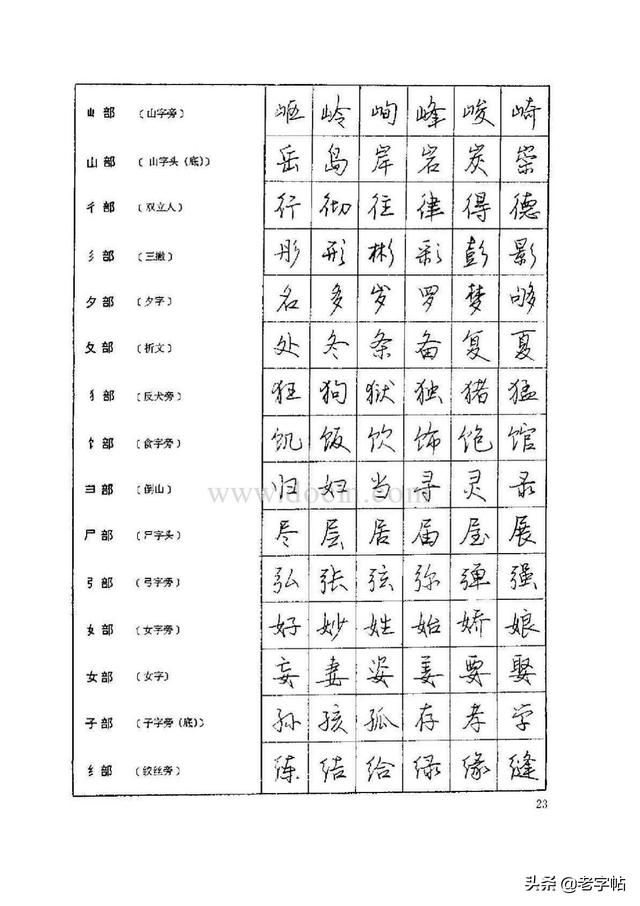 山部 (山字旁) 岖 岭 峋 峰 峻 崎
山部 (山字头(底)) 岳 岛 岸 岩 炭 崇
彳部 (双立人) 行 彻 往 律 得 德
彡部 (三撇) 彤 形 彬 彩 彭 影
夕部 (夕字) 名 多 岁 罗 梦 够
夂部 (折文) 处 冬 条 备 复 夏
犭部 (反犬旁) 狂 狗 狱 独 猪 猛
饣部 (食字旁) 饥 饭 饮 饰 饱 馆
彐部 (倒山) 归 妇 当 寻 灵 录
www.docin.com
尸部 (尸字头) 尽 层 居 届 屋 展
弓部 (弓字旁) 弘 张 弦 弥 弹 强
女部 (女字旁) 好 妙 姓 始 娇 娘
女部 (女字) 妄 妻 姿 姜 要 娶
子部 (子字旁(底)) 孙 孩 孤 存 孝 学
纟部 (绞丝旁) 练 结 给 绿 缘 缝
23
头条 @老字帖